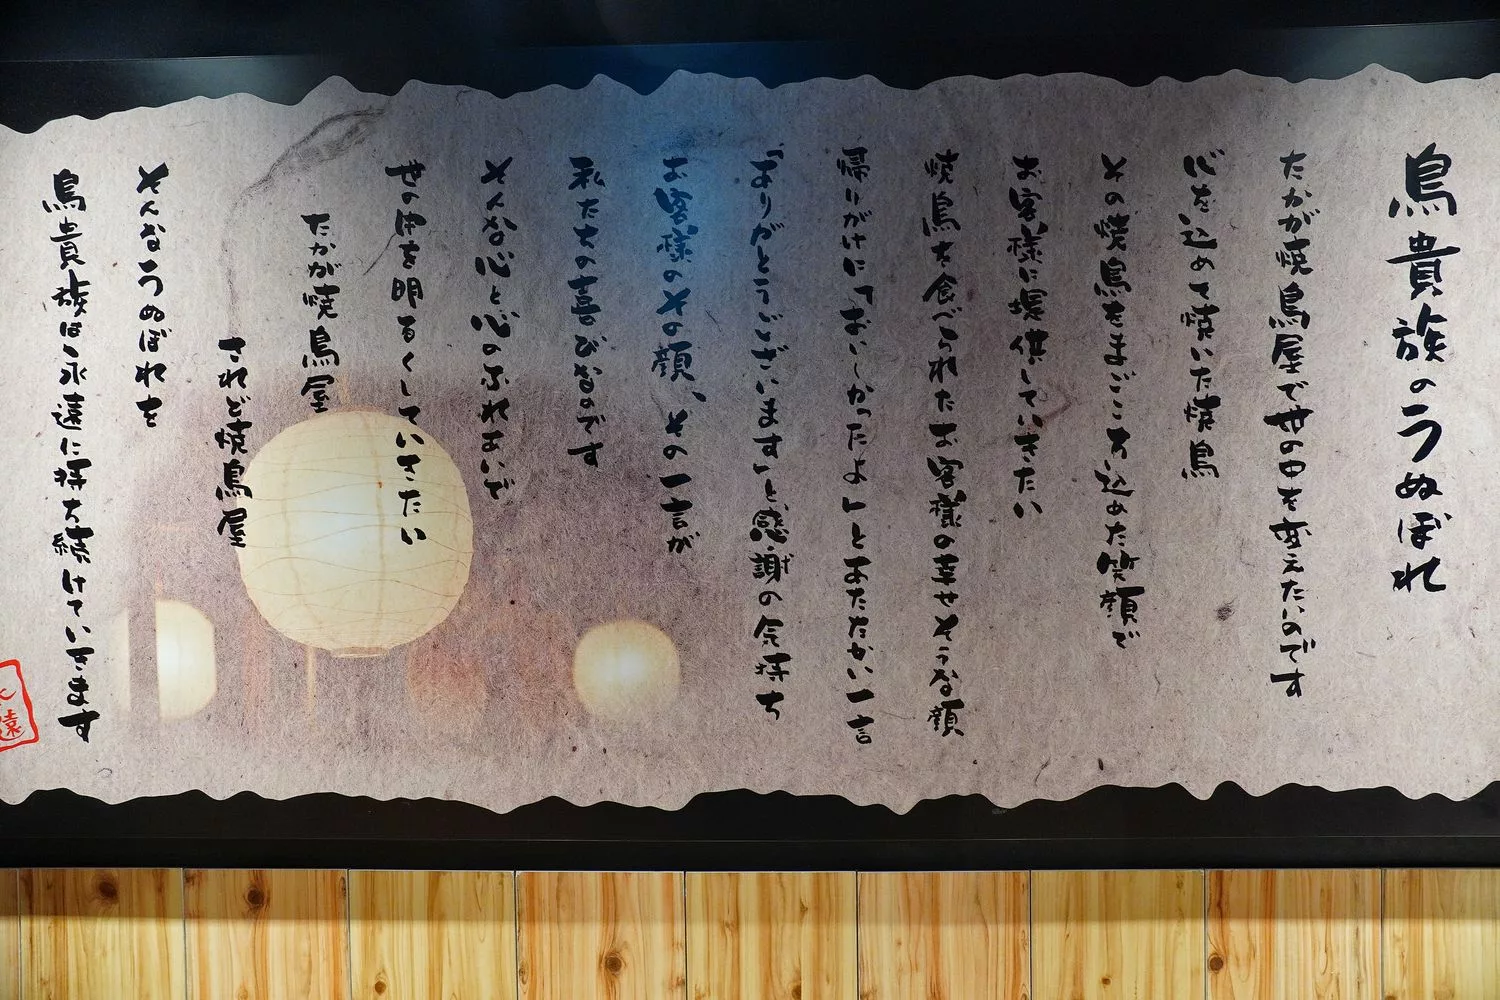 鳥貴族のうぬぼれ
たかが焼鳥屋で世の中を変えたいのです
心を込めて焼いた焼鳥
その焼鳥をまごころ込めた笑顔で
お客様に提供していきたい
焼鳥を食べられたお客様の幸せそうな顔
帰りがけに「おいしかったよ」とあたたかい一言
「ありがとうございます」と、感謝の気持ち
お客様のその顔、その一言が
私たちの喜びなのです
そんな心と心のふれあいで
世の中を明るくしていきたい
たかが焼鳥屋
されど焼鳥屋
そんなうぬぼれを
鳥貴族は永遠に持ち続けていきます
永遠